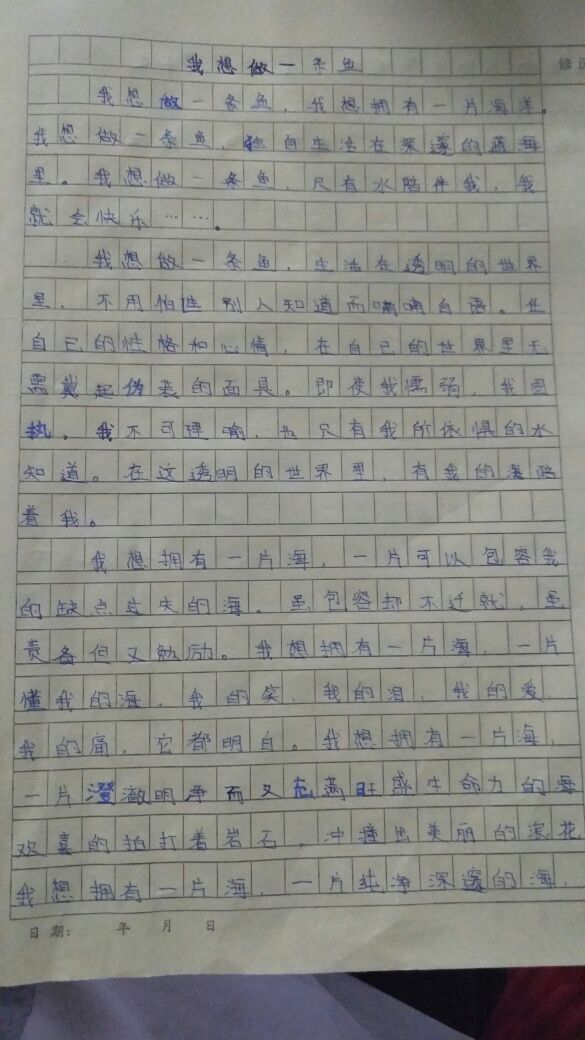 我想做一条鱼
我想做一条鱼，我想拥有一片海洋。
我想做一条鱼，独自生活在深邃的蓝海
里。我想做一条鱼，只有水陪伴我，我
就会快乐……。
我想做一条鱼，生活在透明的世界
里，不用怕谁别人知道而喃喃自语。任
自己的性格和心情，在自己的世界里无
需戴起伪装的面具。即使我懦弱，我固
执，我不可理喻，也只有我所依惧的水
知道。在这透明的世界里，有我的海陪
着我。
我想拥有一片海，一片可以包容我
的缺点过失的海。虽包容却不迁就，虽
责备但又勉励。我想拥有一片海，一片
懂我的海，我的笑，我的泪，我的爱，
我的痛，它都明白。我想拥有一片海，
一片澄澈明净而又充满旺盛生命力的海
欢喜的拍打着岩石，冲撞出美丽的浪花
我想拥有一片海，一片纯净深邃的海，
日期： 年 月 日